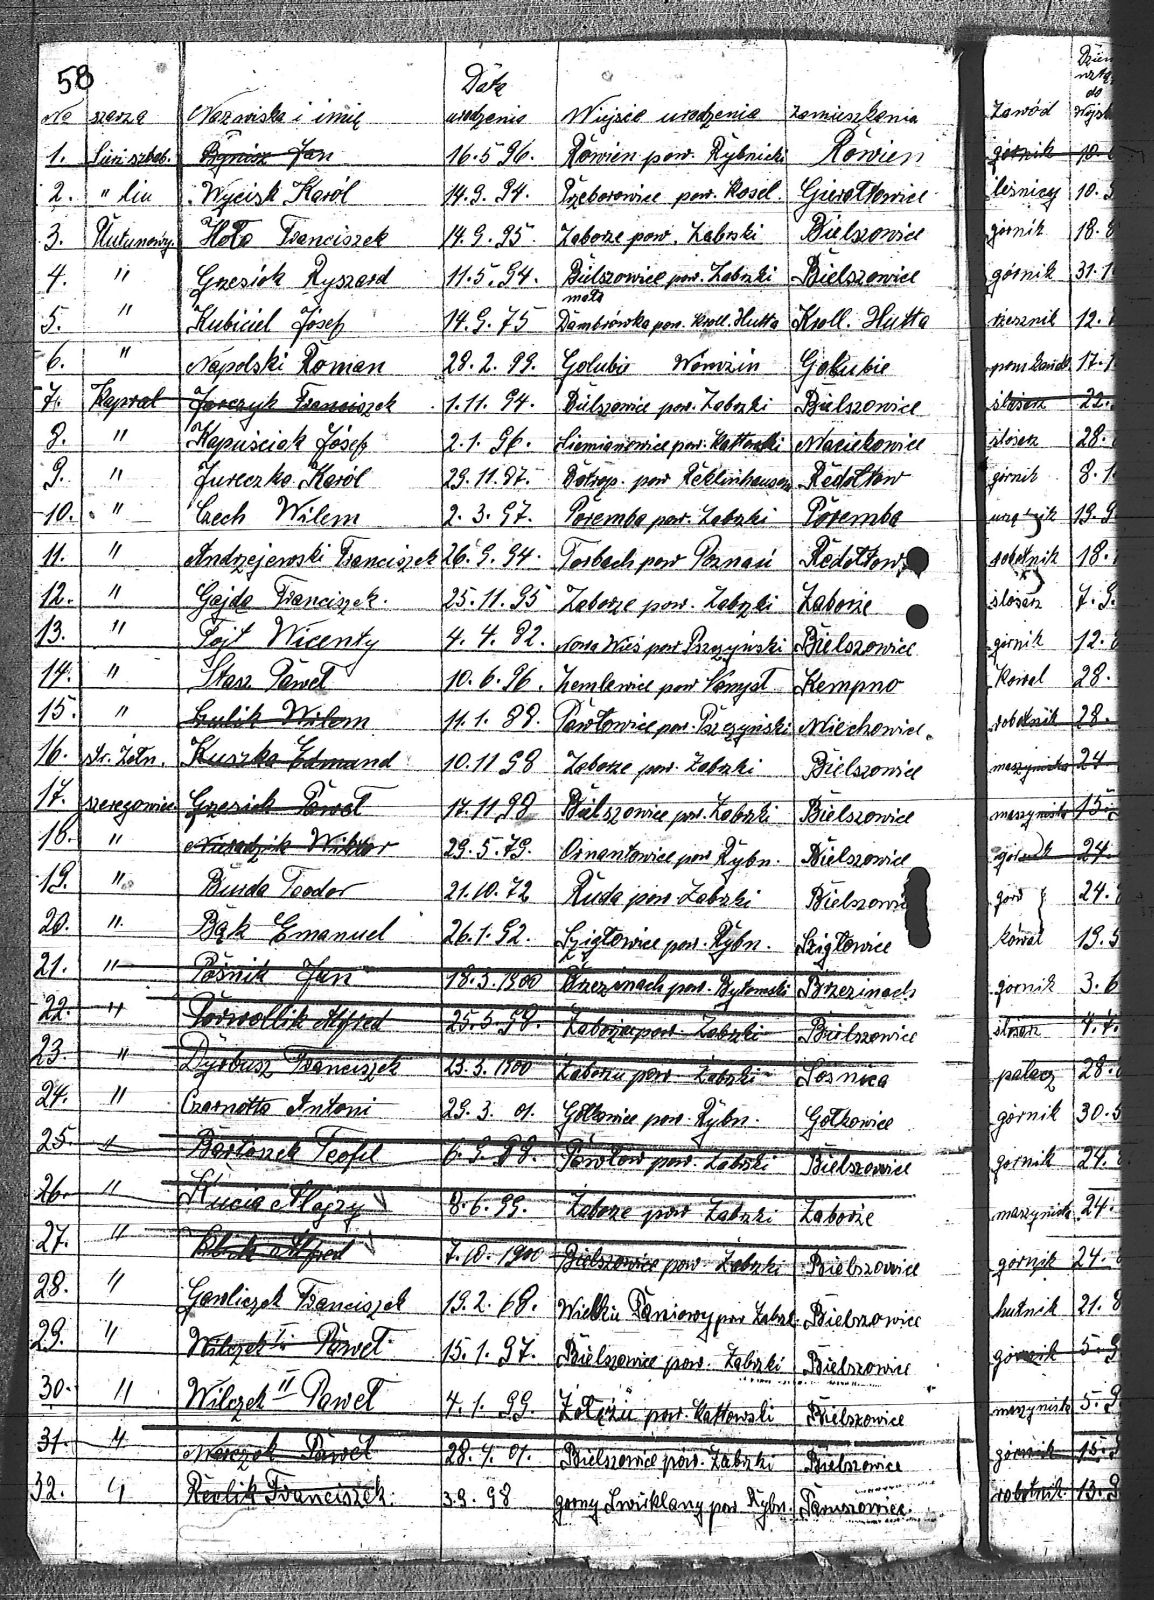 58
No szarża Nazwiska i imię Data urodzenia Miejsce urodzenia zamieszkania Zawód Dzień wstą. do Wojsk
1. Sierż. sztab. Jan 16.5.96. Rówień pow. Rybnicki Rówień górnik 10.
2. " lin Wycisk Karól 14.9.94. Przeborowice pow. Kosel. Gierałtowice leśniczy 10.
3. Plutonowy. Hota Franciszek 14.9.95. Zaborze pow. Zabrski Bielszowice górnik 18.
4. " Grzesiok Ryszard 11.5.94. Bielszowice pow. Zabrski Bielszowice górnik 31.1
5. " Kubiciel Józef 14.9.75 mała Dąmbrówka pow. Kroll. Hutta Kroll. Hutta rzeznik 12.
6. " Napolski Roman 28.2.99. Golubie Golubie 17.1
7. Kapral Jarczyk Franciszek 1.11.94. Bielszowice pow. Zabrzki Bielszowice slosarz 22.
8. " Kapuściok Józef 2.1.96. Siemianowice pow. Kattowski Maciekowice slosarz 28.
9. " Jureczka Karól 29.11.87. Botrop. pow Reklinhausen Redołtow górnik 8.1
10. " Czech Wilem 2.3.97. Poremba pow. Zabrzki Poremba 19.9
11. " Andrzejewski Franciszek 26.9.94. Torbach pow Poznań Redołtow robotnik 18.
12. " Gajda Franciszek. 25.11.95 Zaborze pow. Zabrzki Zaborze slosarz 7.9.
13. " Pojt Wicenty 4.4.82. Nowa Wieś pow Pszczyński Bielszowice górnik 12.
14. " Stasz Paweł 10.6.96. pow Kempno Kowal 28.
15. " Wilem 11.1.88. Pawłowice pow. Pszczyński Miechowice. robotnik 28.
16. St. Żołn. Kuszka Edmund 10.11 98 Zaborze pow. Zabrzki Bielszowice maszynista 24
17. szeregowiec. Grzesiok Paweł 17.11 98 Bielszowice pow. Zabrski Bielszowice maszynista 15.
18. " Wiktor 29.5.79. Ornantowice pow Rybn. Bielszowice 24.
19. " Buda Teodor 21.10.72 Ruda pow. Zabrzki Bielszowice 24.
20. " Bąk Emanuel 26.1.92. Szigłowice pow. Rybn. Szigłowice Kowal 19.5
21. " Pośnik Jan 18.3.1900 Brzezinach pow. Bytomski Brzezinach gornik 3.6
22. " Porwollik Alfred 25.5.98. Zaborze pow. Zabrzki Bielszowice slosarz 4.7.
23 " Dyrbusz Franciszek 23.3.1900 Zaborzu pow. Zabrski Sośnica palacz 28.
24. " Czarnotta Antoni 29.3.01. Gołkowice pow. Rybn. Gołkowice górnik 30.5
25. " Bartoszek Teofil 6.9.98. Pawłow pow. Zabrski Bielszowice gornik 24.
26. " Kucia Alojzy 8.6.99. Zaborze pow Zabrzki Zaborże maszynista 24.
27. " Alfred 7.10.1900 Bielszowice pow Zabrzki Bielszowice gornik 24.
28. " Gawliczek Franciszek 19.2.68. Wielku Paniowy pow Zabrz. Bielszowice hutnik 21.8
29. " Wilczek I. Paweł 15.1.97. Bielszowice pow. Zabrzki Bielszowice górnik 5.9
30. " Wilczek II Paweł 4.1.99. Załężu pow. Kattowski Bielszowice maszynista 5.9.
31. " Paweł 28.4.01. Bielszowice pow. Zabrzki Bielszowice górnik 15.
32. " Rerlik Franciszek. 3.9.98 gorny Swirklany pow Rybn. Paniowice. robotnik 13.